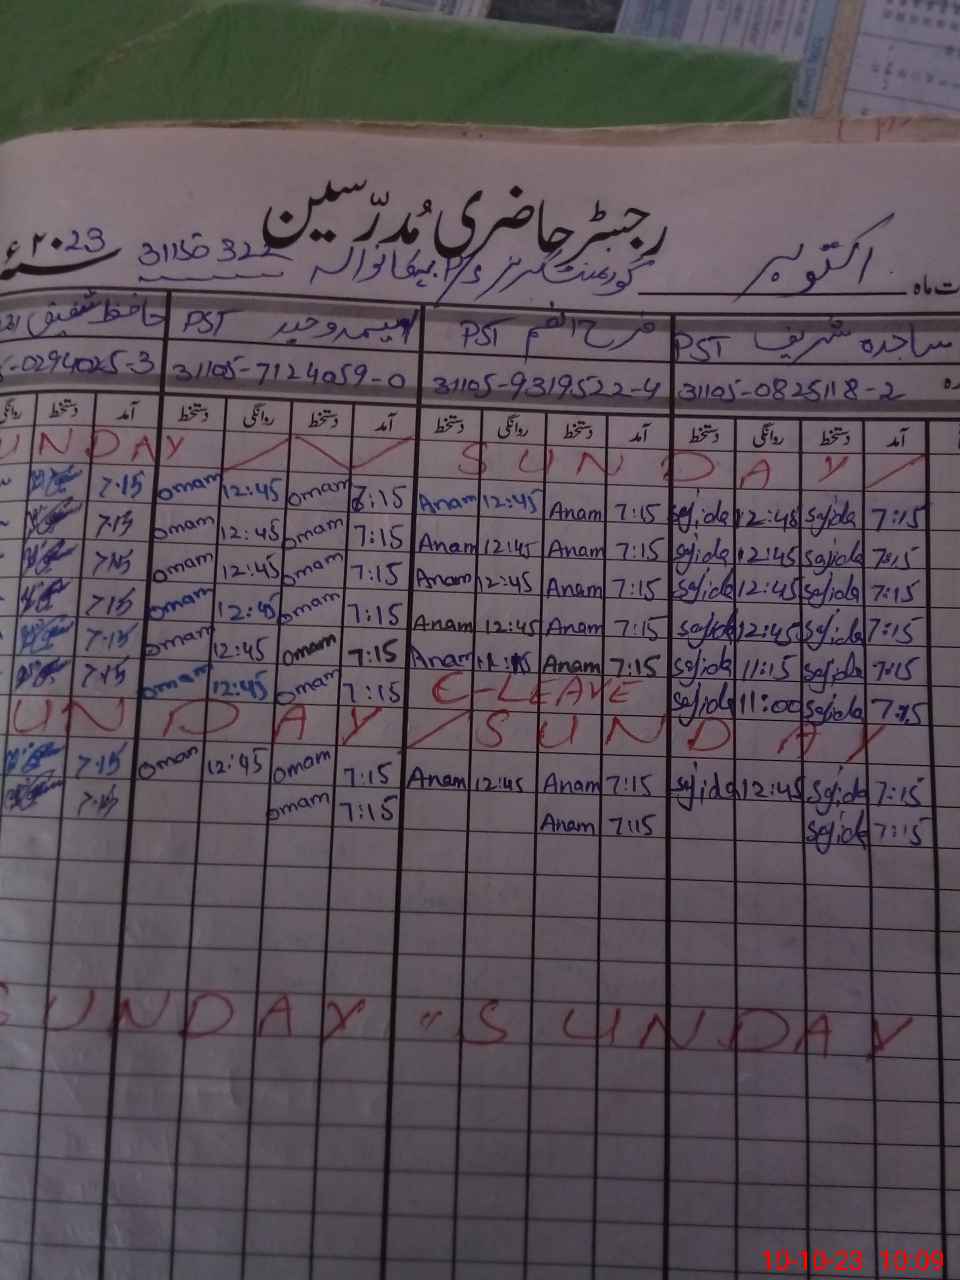 رجسٹر حاضری مُدرّسین
ت ماہ اکتوبر گورنمنٹ گرلز 31150322 ۲۰23ء
ساجدہ شریف PST فرح PST PST حافظ شفیق
31105-0825118-2 31105-9319522-4 31105-7124059-0 -0294025-3
آمد دستخط روانگی دستخط آمد دستخط روانگی دستخط آمد دستخط روانگی دستخط آمد دستخط
UNDAY SUNDAY
7:15 omam 12:45 omam 7:15 Anam 12:45 Anam 7:15 sajida 12:45 sajida 7:15
7:15 omam 12:45 omam 7:15 Anam 12:45 Anam 7:15 sajida 12:45 sajida 7:15
7:15 omam 12:45 omam 7:15 Anam 12:45 Anam 7:15 sajida 12:45 sajida 7:15
7:15 omam 12:45 omam 7:15 Anam 12:45 Anam 7:15 sajida 12:45 sajida 7:15
7:15 omam 12:45 omam 7:15 Anam Anam 7:15 sajida 11:15 sajida 7:15
7:15 omam 12:45 omam 7:15 C-LEAVE sajida 11:00 sajida 7:15
UNDAY SUNDAY
7:15 omam 12:45 omam 7:15 Anam 12:45 Anam 7:15 sajida 12:45 sajida 7:15
7:15 omam 7:15 Anam 7:15 sajida 7:15
SUNDAY " SUNDAY
10-10-23 10:09